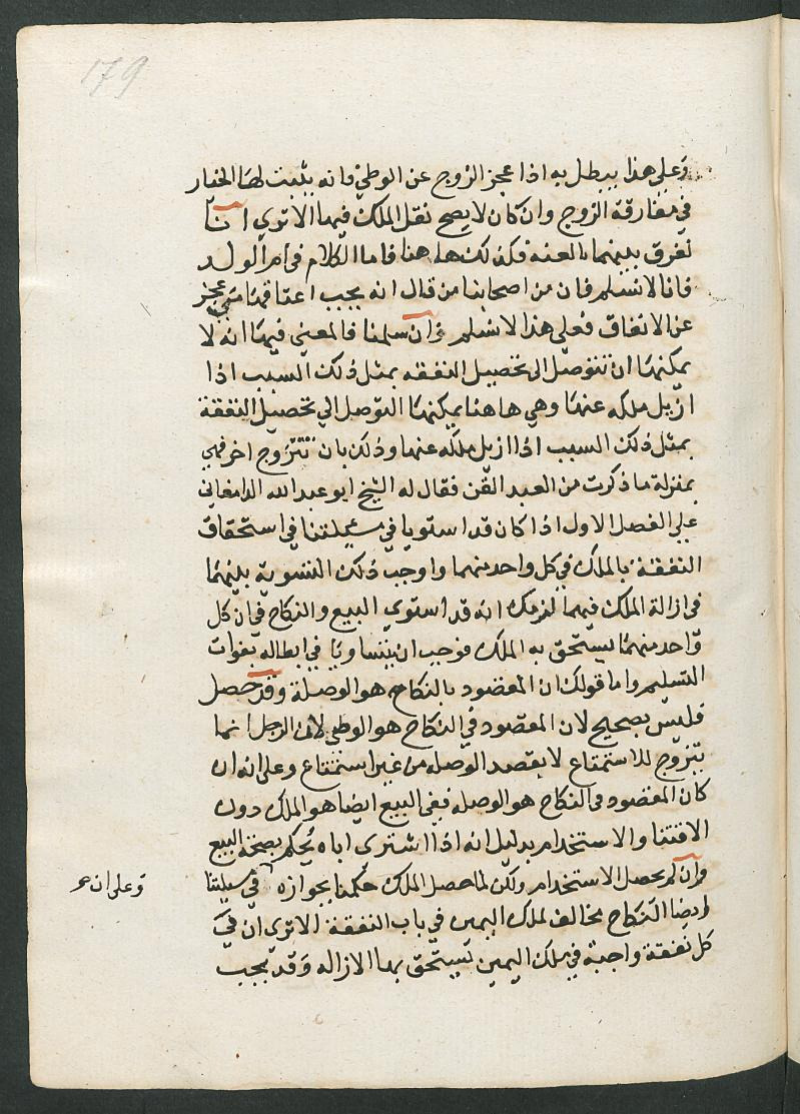 179
وعلى هذا يبطل به اذا عجز الزوج عن الوطي فانه يثبت لها الخيار
في مفارقة الزوج وان كان لا يصح نقل الملك فيها الا ترى انا
نفرق بينهما بالعنة فكذلك ها هنا فاما الكلام في ام الولد
فانا لا نسلم فان من اصحابنا من قال انه يجب اعتاقها متى عجز
عن الانفاق فعلى هذا لا نسلم وان سلمنا فالمعنى فيها انه لا
يمكنها ان تتوصل الى تحصيل النفقه بمثل ذلك السبب اذا
ازيل ملكه عنها وهي ها هنا يمكنها التوصل الى تحصيل النفقة
بمثل ذلك السبب اذا ازيل ملكه عنها وذلك بان تتزوج اخر فهي
بمنزلة ما ذكرت من العبد القن فقال له الشيخ ابو عبد الله الدامغاني
على الفصل الاول اذا كان قد استويا في مسئلتنا في استحقاق
النفقة بالملك في كل واحد منهما واوجب ذلك التسوية بينهما
في ازالة الملك فيهما لزمك انه قد استوى البيع والنكاح في ان كل
واحد منهما يستحق به الملك فوجب ان يتساويا في ابطاله بفوات
التسليم واما قولك ان المقصود بالنكاح هو الوصلة وقد حصل
فليس بصحيح لان المقصود في النكاح هو الوطي لان الرجل انما
يتزوج للاستمتاع لا يقصد الوصله من غير استمتاع وعلى انه ان
كان المقصود في النكاح هو الوصله ففي البيع ايضا هو الملك دون
الاقتنا والاستخدام بدليل انه اذا اشترى اباه يحكم بصحة البيع
وان لم يحصل الاستخدام ولكن لما حصل الملك حكمنا بجوازه في مسئلتنا
وعلى ان
ايضا النكاح مخالف لملك اليمين في باب النفقة الا ترى ان في
كل نفقة واجبة في ملك اليمين تستحق بها الازاله وقد يجب